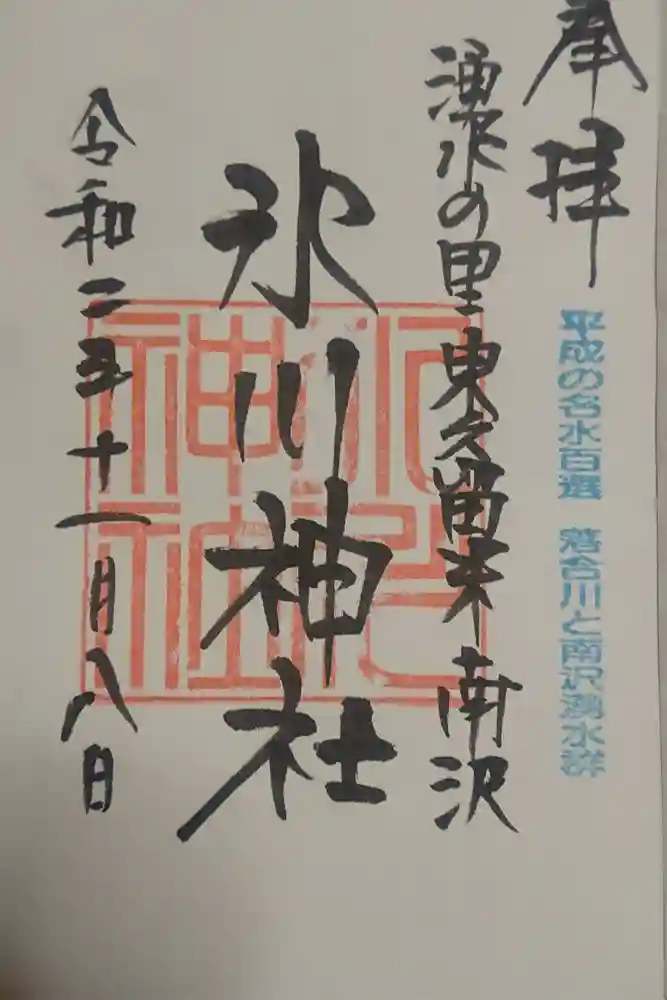 奉拝
平成の名水百選 落合川と南沢湧水群
湧水の里東久留米南沢
氷川神社
令和二年十一月八日